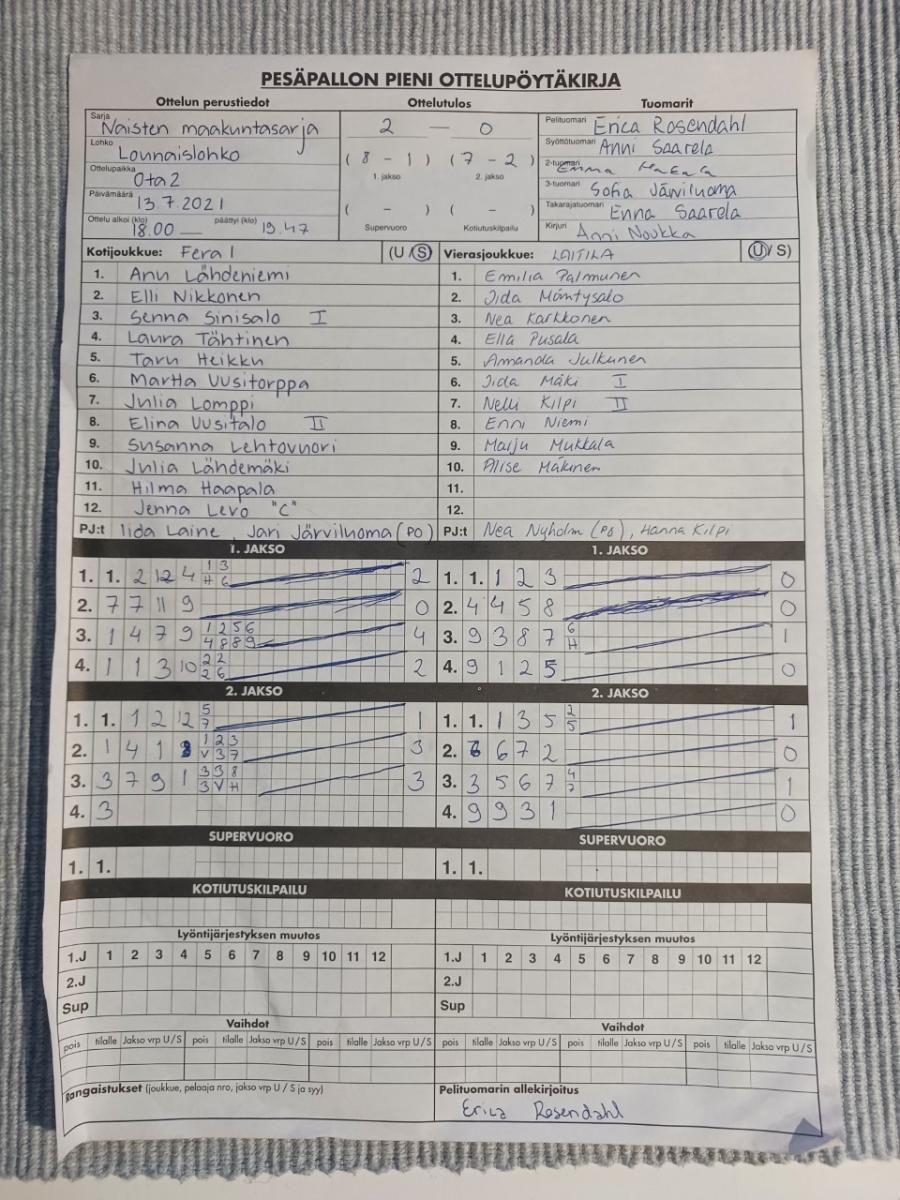 PESÄPALLON PIENI OTTELUPÖYTÄKIRJA
Ottelun perustiedot Ottelutulos Tuomarit
Sarja Naisten maakuntasarja
Lohko Lounaislohko
Ottelupaikka Ota2
Päivämäärä 13.7.2021
Ottelu alkoi (klo) 18.00 — päättyi (klo) 19.47
2 — 0
(8 - 1) (7 - 2)
1. jakso 2. jakso
( - ) ( - )
Supervuoro Kotiutuskilpailu
Pelituomari Erica Rosendahl
Syöttötuomari Anni Saarela
2-tuomari Emma
3-tuomari Sofia Järviluoma
Takarajatuomari Enna Saarela
Kirjuri Anni Noukka
Kotijoukkue: Fera 1 (U/S) Vierasjoukkue: LAITILA (U/S)
1. Anu Lähdeniemi 1. Emilia Palmunen
2. Elli Nikkonen 2. Iida Mäntysalo
3. Senna Sinisalo I 3. Nea Karkkonen
4. Laura Tähtinen 4. Ella Pusala
5. Taru Heikku 5. Amanda Julkunen
6. Martta Uusitorppa 6. Iida Mäki I
7. Julia Lomppi 7. Nelli Kilpi II
8. Elina Uusitalo II 8. Enni Niemi
9. Susanna Lehtovuori 9. Maiju Mukkala
10. Julia Lähdemäki 10. Alise Mäkinen
11. Hilma Haapala 11.
12. Jenna Levo "C" 12.
PJ:t Iida Laine, Jari Järviluoma (PO) PJ:t Nea Nyholm (PS), Hanna Kilpi
1. JAKSO 1. JAKSO
1. 1. 2 12 4 1 3 H 6 2 1. 1. 1 2 3 0
2. 7 7 11 9 0 2. 4 4 5 8 0
3. 1 4 7 9 1 2 5 6 4 8 8 9 4 3. 9 3 8 7 6 H 1
4. 1 1 3 10 2 2 2 6 2 4. 9 1 2 5 0
2. JAKSO 2. JAKSO
1. 1. 1 2 12 5 7 1 1. 1. 1 3 5 2 5 1
2. 1 4 1 8 1 2 3 V 3 7 3 2. 6 6 7 2 0
3. 3 7 9 1 3 3 8 3 V H 3 3. 3 5 6 7 4 7 1
4. 3 4. 9 9 3 1 0
SUPERVUORO SUPERVUORO
1. 1. 1. 1.
KOTIUTUSKILPAILU KOTIUTUSKILPAILU
Lyöntijärjestyksen muutos Lyöntijärjestyksen muutos
1.J 1 2 3 4 5 6 7 8 9 10 11 12 1.J 1 2 3 4 5 6 7 8 9 10 11 12
2.J 2.J
Sup Sup
Vaihdot Vaihdot
pois tilalle Jakso vrp U/S pois tilalle Jakso vrp U/S pois tilalle Jakso vrp U/S pois tilalle Jakso vrp U/S pois tilalle Jakso vrp U/S pois tilalle Jakso vrp U/S
Rangaistukset (joukkue, pelaaja nro, jakso vrp U / S ja syy) Pelituomarin allekirjoitus
Erica Rosendahl